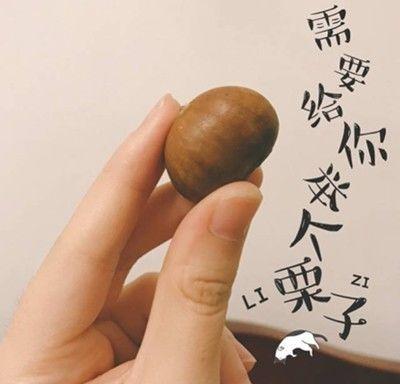 需要给你举个栗子
LI ZI